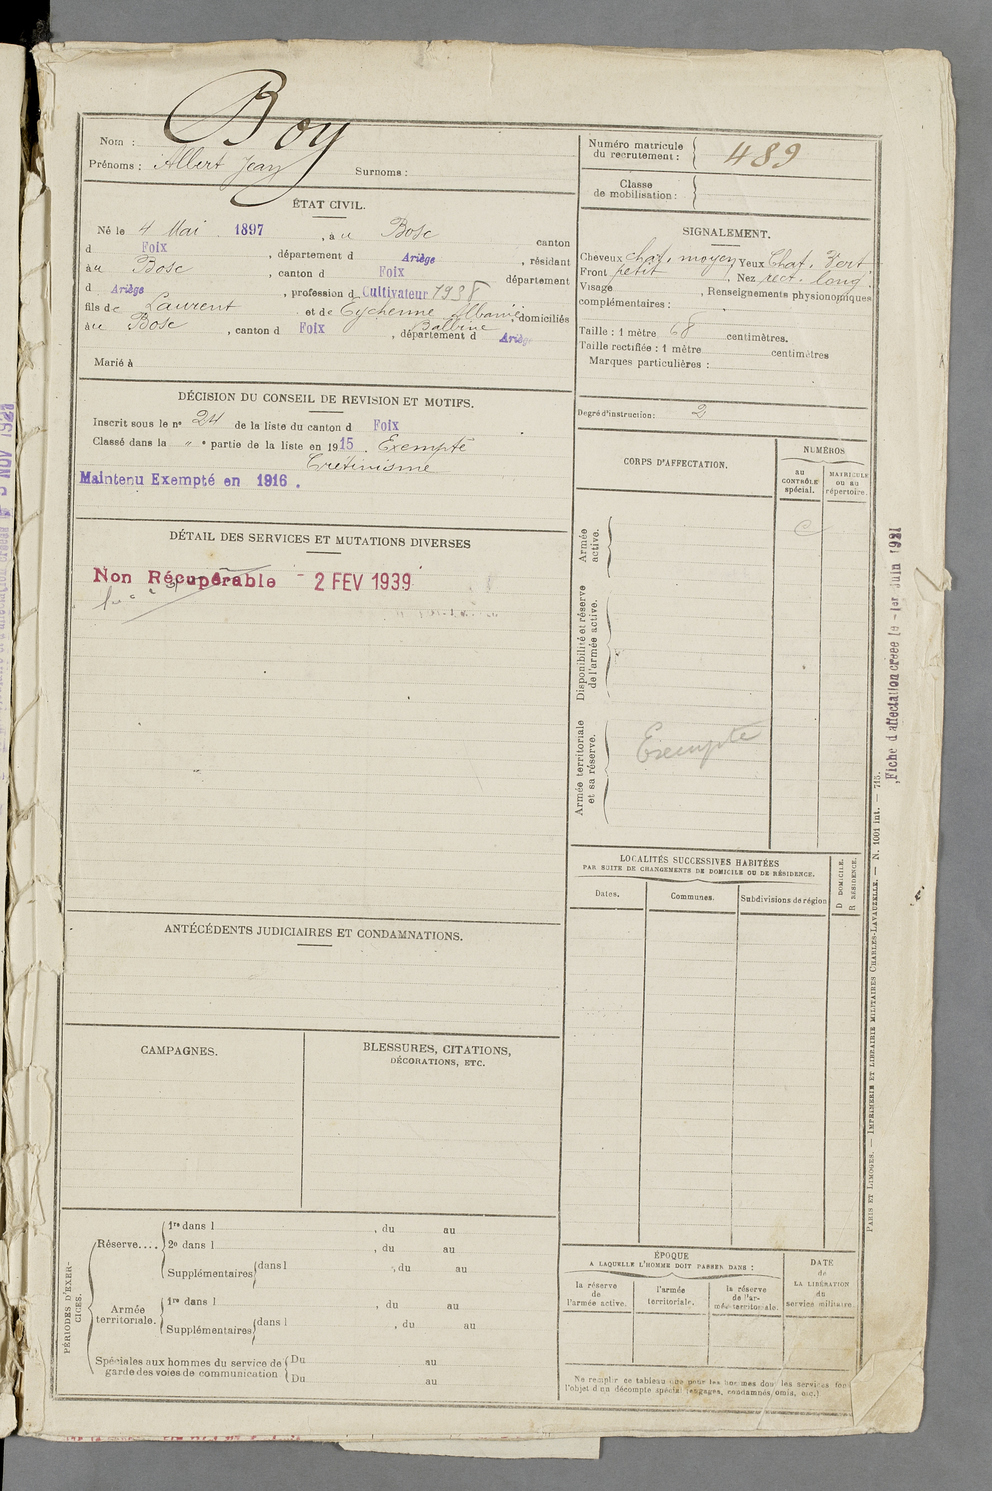 Nom : Boy
Prénoms : Albert Jean Surnoms :
Numéro matricule du recrutement : 489
Classe de mobilisation :
ÉTAT CIVIL.
Né le 4 Mai 1897, à u Bosc canton
d Foix, département d Ariège, résidant
àu Bosc, canton d Foix département
d Ariège, profession d Cultivateur 1938
fils de Laurent et de Eychenne Albanie Balbine, domiciliés
àu Bosc, canton d Foix, département d Ariège
Marié à
SIGNALEMENT.
Cheveux chat. moyen Yeux Chat. Vert.
Front petit, Nez rect. long.
Visage, Renseignements physionomiques
complémentaires :
Taille : 1 mètre 68 centimètres.
Taille rectifiée : 1 mètre centimètres
Marques particulières :
Degré d'instruction : 2
DÉCISION DU CONSEIL DE REVISION ET MOTIFS.
Inscrit sous le n° 24 de la liste du canton d Foix
Classé dans la " e partie de la liste en 1915. Exempté
Crétinisme
Maintenu Exempté en 1916.
DÉTAIL DES SERVICES ET MUTATIONS DIVERSES
Non Récupérable - 2 FEV 1939
CORPS D'AFFECTATION.
NUMÉROS
au CONTRÔLE spécial.
MATRICULE ou au répertoire.
Armée active.
Disponibilité et réserve de l'armée active.
Armée territoriale et sa réserve.
Exempté
LOCALITÉS SUCCESSIVES HABITÉES
PAR SUITE DE CHANGEMENTS DE DOMICILE OU DE RÉSIDENCE.
Dates. Communes. Subdivisions de région
D DOMICILE.
R RÉSIDENCE.
ANTÉCÉDENTS JUDICIAIRES ET CONDAMNATIONS.
CAMPAGNES.
BLESSURES, CITATIONS,
DÉCORATIONS, ETC.
PÉRIODES D'EXERCICES.
Réserve....
1re dans l, du au
2e dans l, du au
Supplémentaires dans l, du au
Armée territoriale.
1re dans l, du au
Supplémentaires dans l, du au
Spéciales aux hommes du service de garde des voies de communication
Du au
Du au
ÉPOQUE
A LAQUELLE L'HOMME DOIT PASSER DANS :
la réserve de l'armée active.
l'armée territoriale.
la réserve de l'armée territoriale.
DATE de LA LIBÉRATION du service militaire.
Ne remplir ce tableau que pour les hommes dont les services font
l'objet d'un décompte spécial (engagés, condamnés, omis, etc.)
Fiche d'affectation créée le -1er Juin 1921
PARIS ET LIMOGES. — IMPRIMERIE ET LIBRAIRIE MILITAIRES CHARLES-LAVAUZELLE. — N. 1001 int. — 715.
NOV 1921